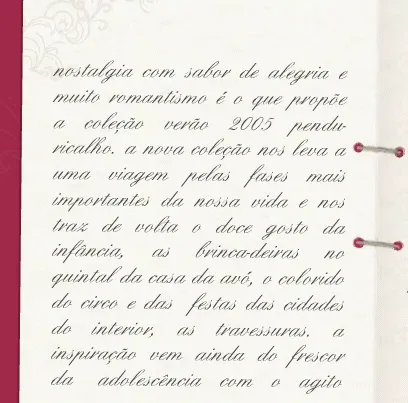 nostalgia com sabor de alegria e
muito romantismo é o que propõe
a coleção verão 2005 pendu-
ricalho. a nova coleção nos leva a
uma viagem pelas fases mais
importantes da nossa vida e nos
traz de volta o doce gosto da
infância, as brinca-deiras no
quintal da casa da avó, o colorido
do circo e das festas das cidades
do interior, as travessuras. a
inspiração vem ainda do frescor
da adolescência com o agito